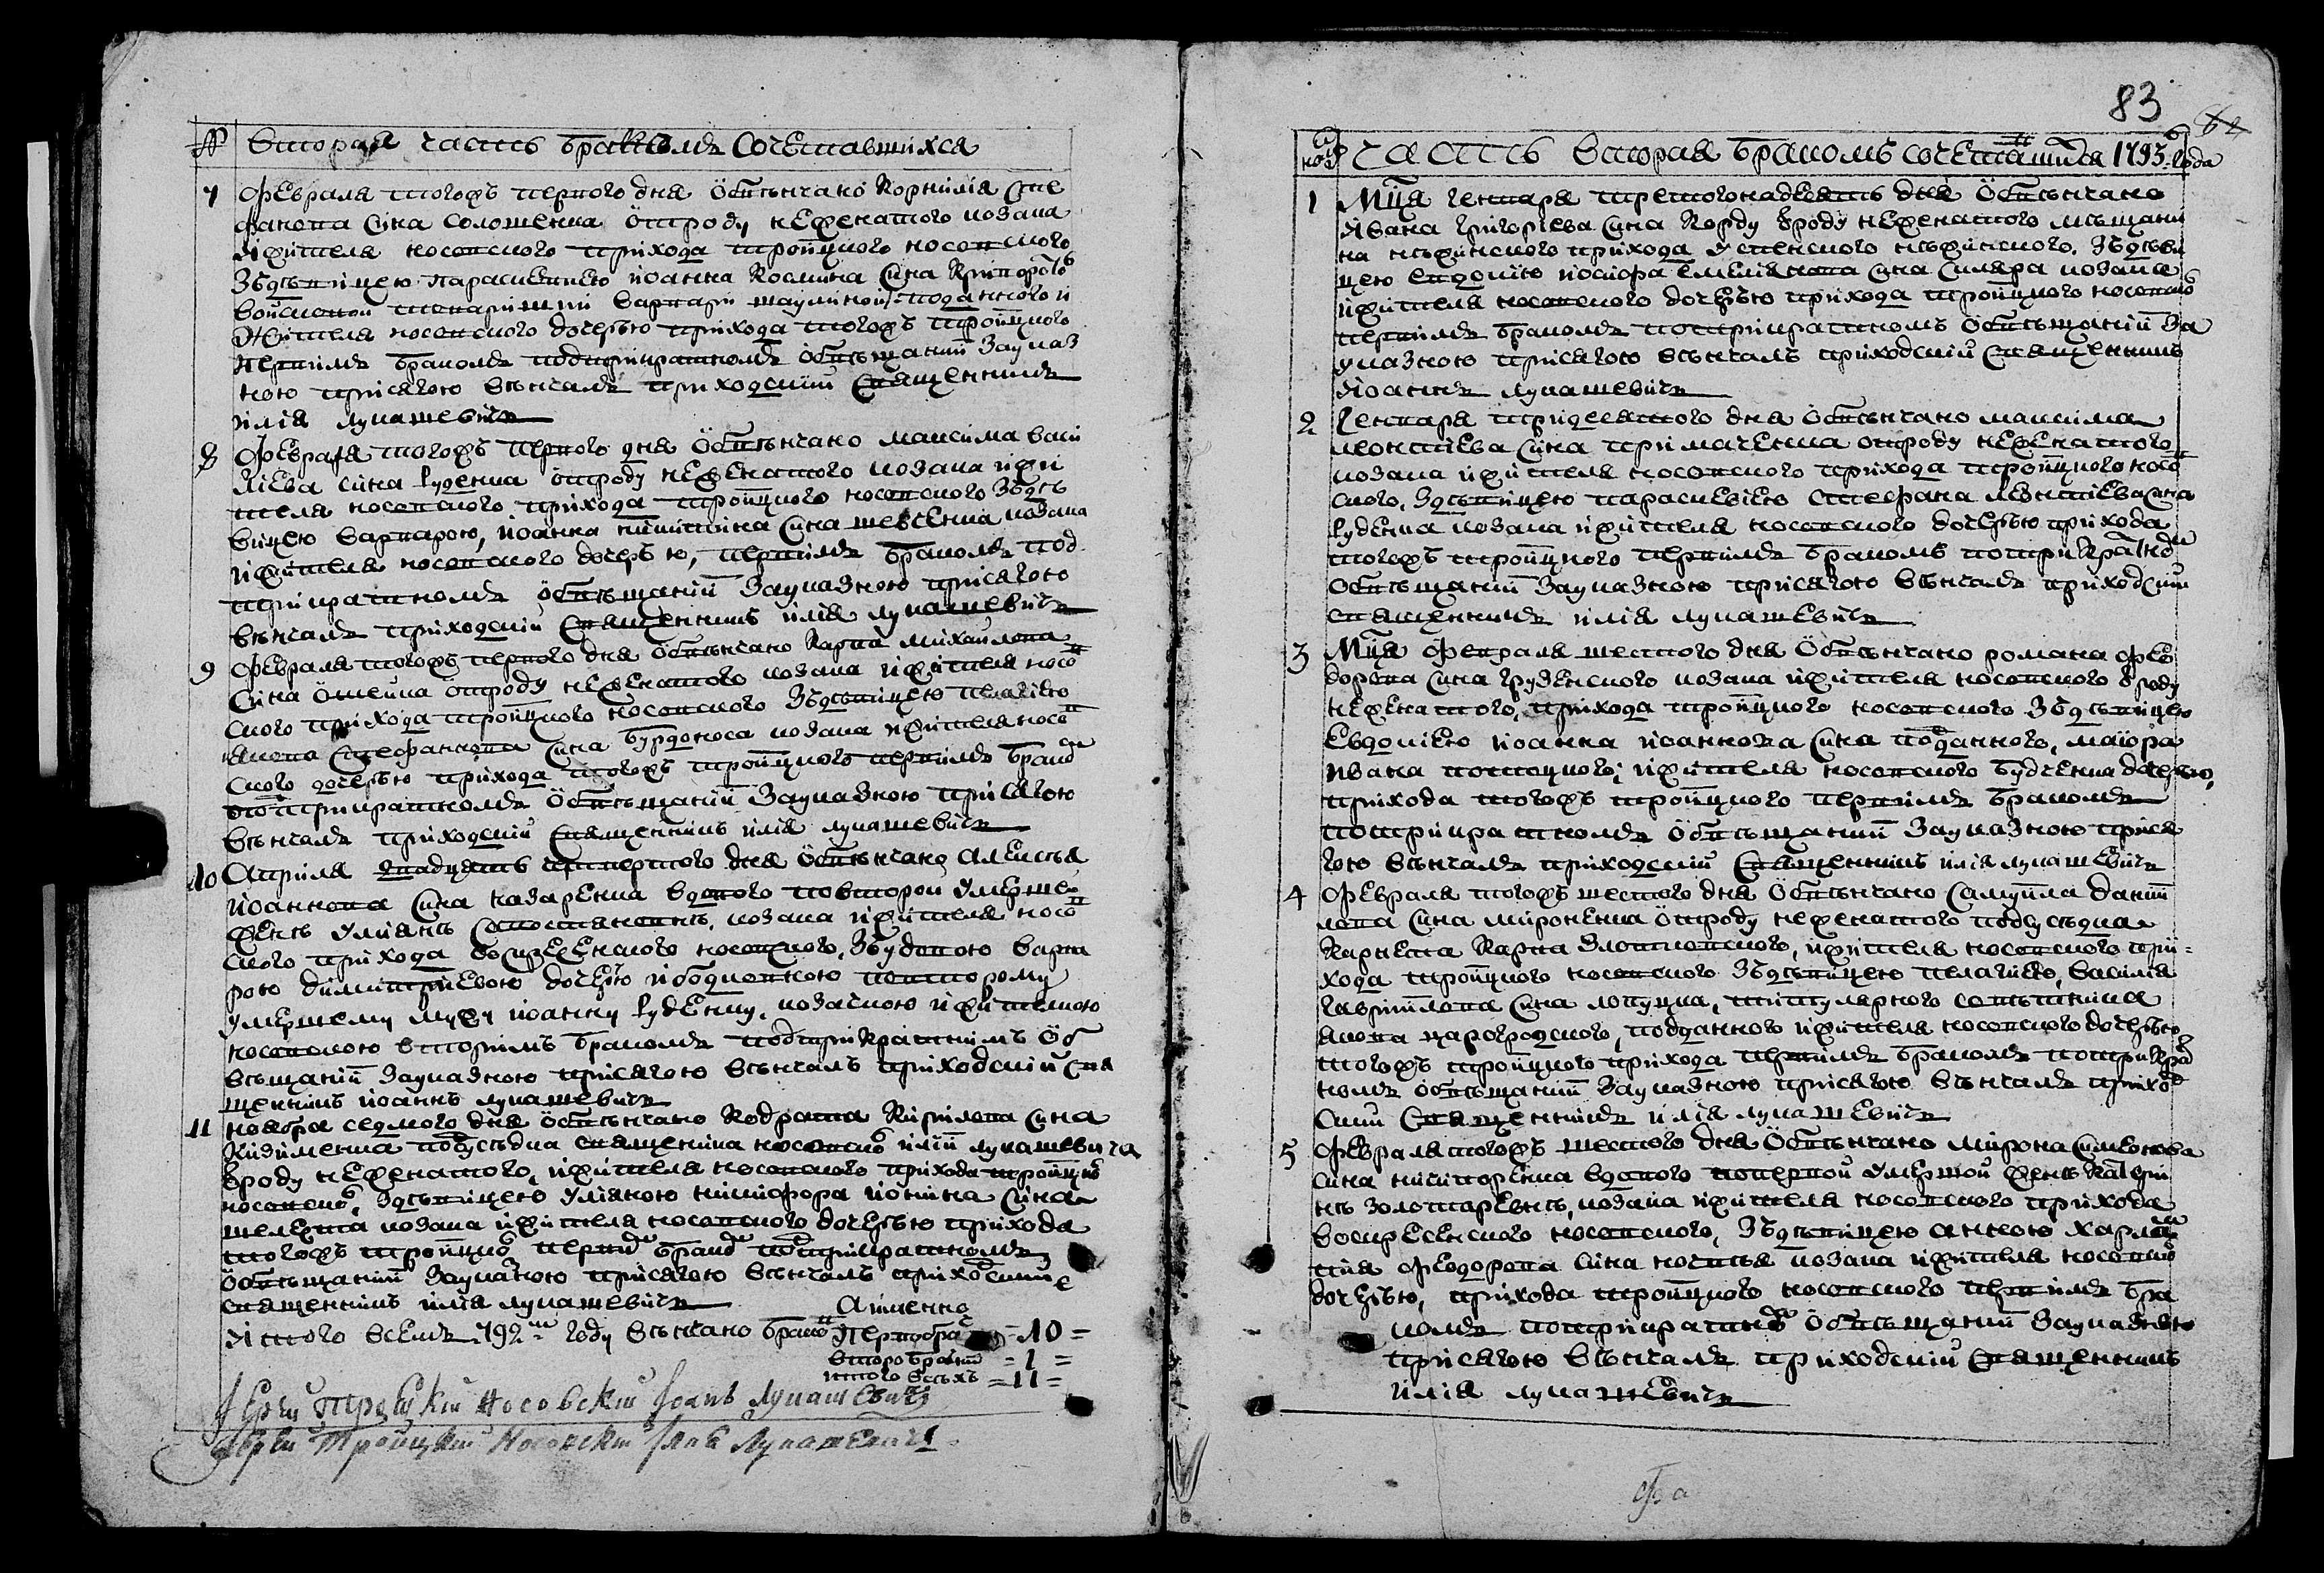 № вторая часть бракомъ Сочетавшихся
7 февраля тогожъ первого дня Обвѣнчано Корнилія Сте
фанова Сина Солошенка Отроду неженатого козака
Жителя носовского прихода троицкого носовского
Здѣвицею Параскевиею иоанна Косминка Сина
жителя носовского дочерью прихода тогожъ троицкого
первимъ бракомъ подприкратномъ Обвѣщании Зауказ
ною присягою вѣнчалъ приходскій Священникъ
илія лукашевичъ
8 Февраля тогожъ первого дня Обвѣнчано максима васи
лієва сина руденка Отроду неженатого козака ижи
теля носовского прихода троицкого носовского Здѣ
вицею варварою, иоанна никитина Сина шевченка козака
ижителя носовского дочерью, первимъ бракомъ под
прикратномъ Обвѣщании Зауказною присягою
вѣнчалъ приходскій Священникъ илія лукашевичъ
9 Февраля тогожъ первого дня Обвѣнчано Карпа михайлова
Сина Отроду неженатого козака ижителя носов
ского прихода троицкого носовского Здѣвицею пелагиею
якова Стефанова Сина бурдоноса козака ижителя носов
ского дочерью прихода тогожъ троицкого первимъ браком
подприкратномъ Обвѣщании Зауказною присягою
вѣнчалъ приходскій Священникъ илія лукашевичъ
10 Априля двадцять четвертого дня Обвѣнчано Алексѣя
иоаннова Сина назаренка вдового повторой умершей
женѣ улиянѣ козака ижителя носов
ского прихода воскресенского носовского, Звдовою варва
рою димитриевою дочерю
умершему мужу иоанну руденку, козачкою ижителкою
носовскою вторимъ бракомъ подприкратнимъ Об
вѣщании Зауказною присягою вѣнчалъ приходскій Свя
щенникъ иоаннъ лукашевичъ
11 ноября седмого дня Обвѣнчано Кодрата Кирилова Сина
Кизименка подсусѣдка священника носовско илии лукашевича
Зроду неженатого, ижителя носовского прихода троицко
носовско, Здѣвицею улияною никифора Сина
козака ижителя носовского дочерью прихода
тогожъ троицко первим браком подприкратномъ
Обвѣщании Зауказною присягою вѣнчалъ приходскій
священникъ илія лукашевичъ
А именно
Итого всемъ 792м году вѣнчано браков первобрач =10=
второбрачн =1=
итого всѣхъ =11=
Іерей троецкій Носовскій Іоанъ Лукашевичъ
Іерей Троицкій Носовскій Илія Лукашевичъ
83
Число часть вторая бракомъ сочетавшихся 1793го года
1 Мця генваря третогонадесять дня Обвѣнчано
Ивана григорієва Сина Корду Зроду неженатого мѣщани
на нѣжинского прихода успенского нѣжинского, Здѣви
цею евдокиею никифра Сина Скляра козака
ижителя носовского дочерью прихода троицкого носовско
первимъ бракомъ поприкратномъ Обвѣщании За
указною присягою вѣнчалъ приходскій священникъ
Иоаннъ лукашевичъ
2 генваря тридесятого дня Обвѣнчано максима
леонтиева Сина примаченка отроду неженатого
козака ижителя носовского прихода троицкого носов
ского, Здѣвицею параскевиею стефана леонтиева Сина
руденка козака ижителя носовского дочерью прихода
тогожъ троицкого первимъ бракомъ поприкратном
Обвѣщании Зауказною присягою вѣнчалъ приходскій
священникъ илія лукашевичъ
3 Мця февраля шестого дня Обвѣнчано романа фео
дорова Сина грузенского козака ижителя носовского Зроду
неженатого, прихода троицкого носовского Здѣвицею
Евдокиею иоанна иоаннова Сина подданного, маиора
ивана почоцкого, ижителя носовского будченка дочерью,
прихода тогожъ троицкого первимъ бракомъ
поприкратномъ Обвѣщании Зауказною прися
гою вѣнчалъ приходскій Священникъ илія лукашевичъ
4 Февраля тогожъ шестого дня Обвѣнчано Самуила дании
лова Сина мироненка Отроду неженатого подсусѣдка
Карнета Карпа ижителя носовского при=
хода троицкого носовского Здѣвицею пелагиею, василя
гавриилова Сина лопуцка, титулярного совѣтника
якова царегродского, подданного ижителя носовского дочерью
тогожъ троицкого прихода первимъ бракомъ поприкрат
номъ Обвѣщании Зауказною присягою вѣнчалъ приход
скій Священникъ илія лукашевичъ
5 Февраля тогожъ шестого дня Обвѣнчано мирона симеонова
Сина никифоренка вдового поперьвой умершой женѣ Катери
нѣ золотаревнѣ, козака ижителя носовского прихода
воскресенского носовского, Здѣвицею анною харлам
пия феодорова Сина козака ижителя носовско
дочерью, прихода троицкого носовского первимъ бра
комъ поприкратном Обвѣщании Зауказною
присягою вѣнчалъ приходскій священникъ
илія лукашевичъ